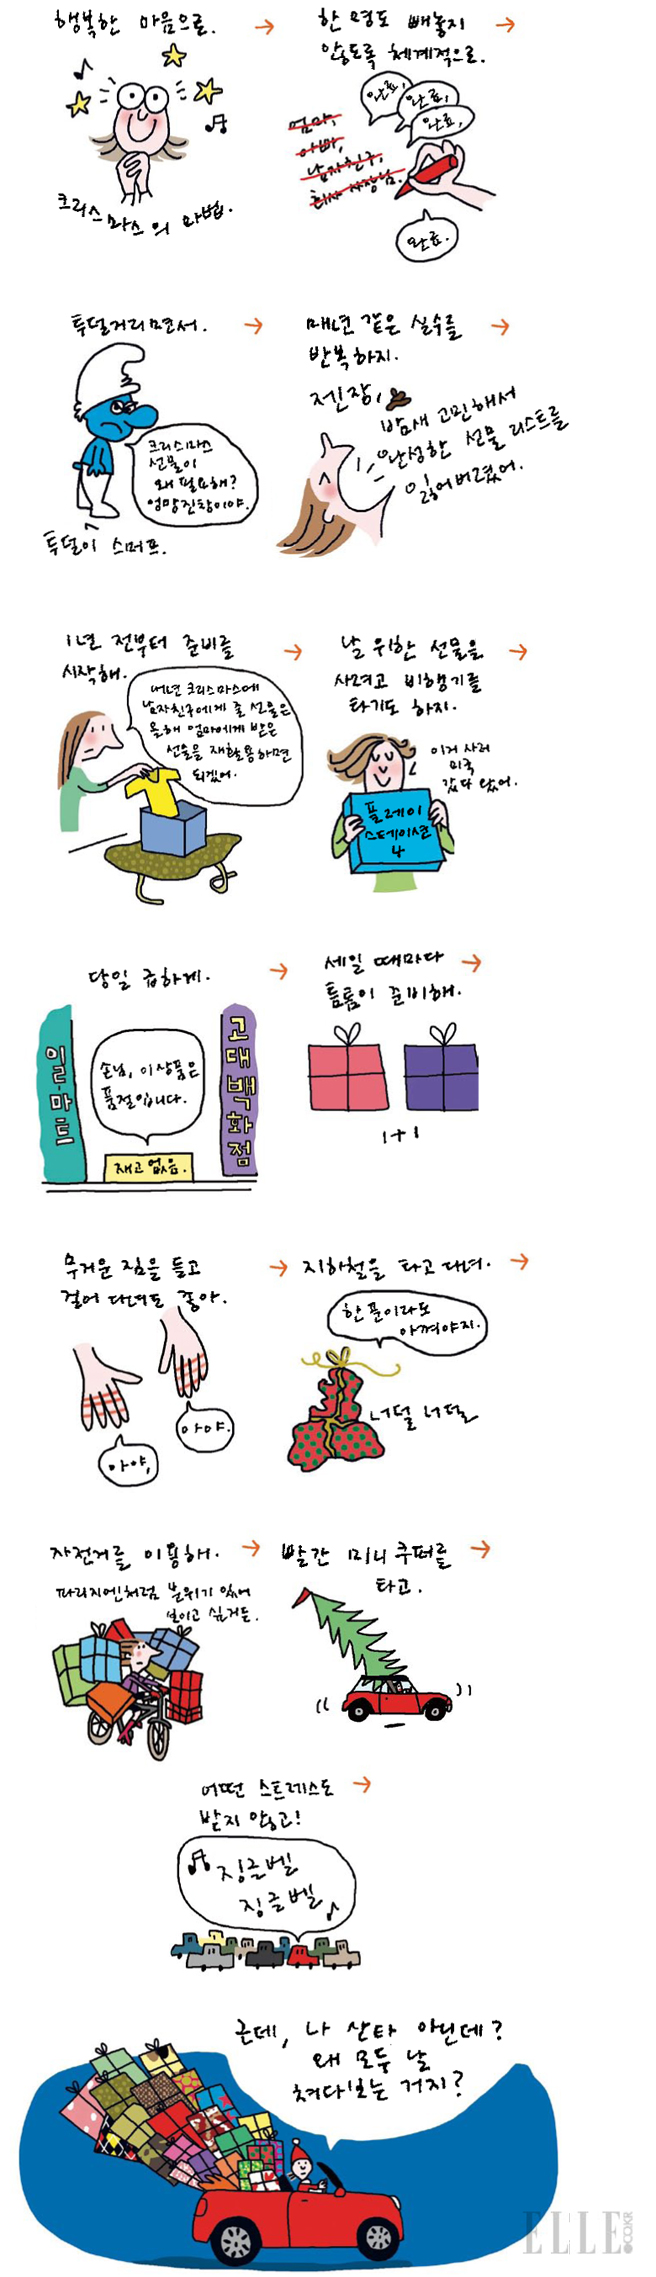 행복한 마음으로.
크리스마스의 마법.
한 명도 빼놓지
않도록 체계적으로.
완료,
완료,
완료,
엄마,
아빠,
남자친구,
회사 사장님.
완료.
투덜거리면서.
크리스마스
선물이
왜 필요해?
엉망진창이야.
투덜이 스머프.
매년 같은 실수를
반복하지.
젠장,
밤새 고민해서
완성한 선물 리스트를
잃어버렸어.
1년 전부터 준비를
시작해.
내년 크리스마스에
남자친구에게 줄 선물은
올해 엄마에게 받은
선물을 재활용하면
되겠어.
날 위한 선물을
사려고 비행기를
타기도 하지.
이거 사러
미국
갔다 왔어.
플레이
스테이션
4
당일 급하게.
일마트
손님, 이 상품은
품절입니다.
재고 없음.
고대백화점
세일 때마다
틈틈이 준비해.
1+1
무거운 짐을 들고
걸어 다녀도 좋아.
아야,
아야.
지하철을 타고 다녀.
한 푼이라도
아껴야지.
너덜너덜
자전거를 이용해.
파리지엔처럼 분위기 있어
보이고 싶거든.
빨간 미니 쿠퍼를
타고.
어떤 스트레스도
받지 않고!
징글벨
징글벨
근데, 나 산타 아닌데?
왜 모두 날
쳐다보는 거지?
ELLE.CO.KR